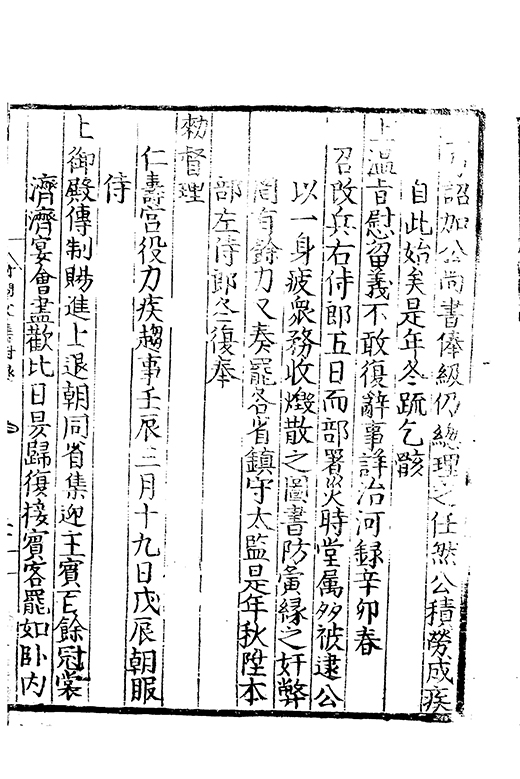 詔加公尚書俸級仍總理之任然公積勞成疾
自此始矣是年冬疏乞骸
上溫旨慰留義不敢復辭事詳治河録辛卯春
召改兵右侍郎五日而部署災時堂属多被逮公
以一身疲衆務收燬散之圖書防夤缘之奸弊
有餘力又奏罷各省鎮守太監是年秋陞本
部左侍郎冬復奉
勑督理
仁壽宫役力疾趨事壬辰二月十九日戊辰朝服
侍
上御殿傳制賜進士退朝同省集迎主賓百餘冠裳
濟濟宴會盡歡比日昃歸復接賓客罷如卧内